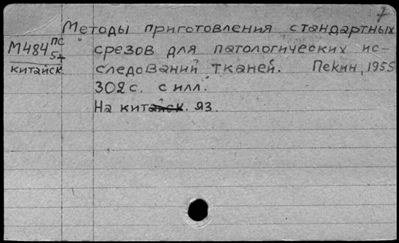 7
Методы приготовления стандартных
М484 ПС 57 срезов для патологических ис-
китайск следований тканей. Пекин, 1955
302 с. с илл.
На китайск. яз.